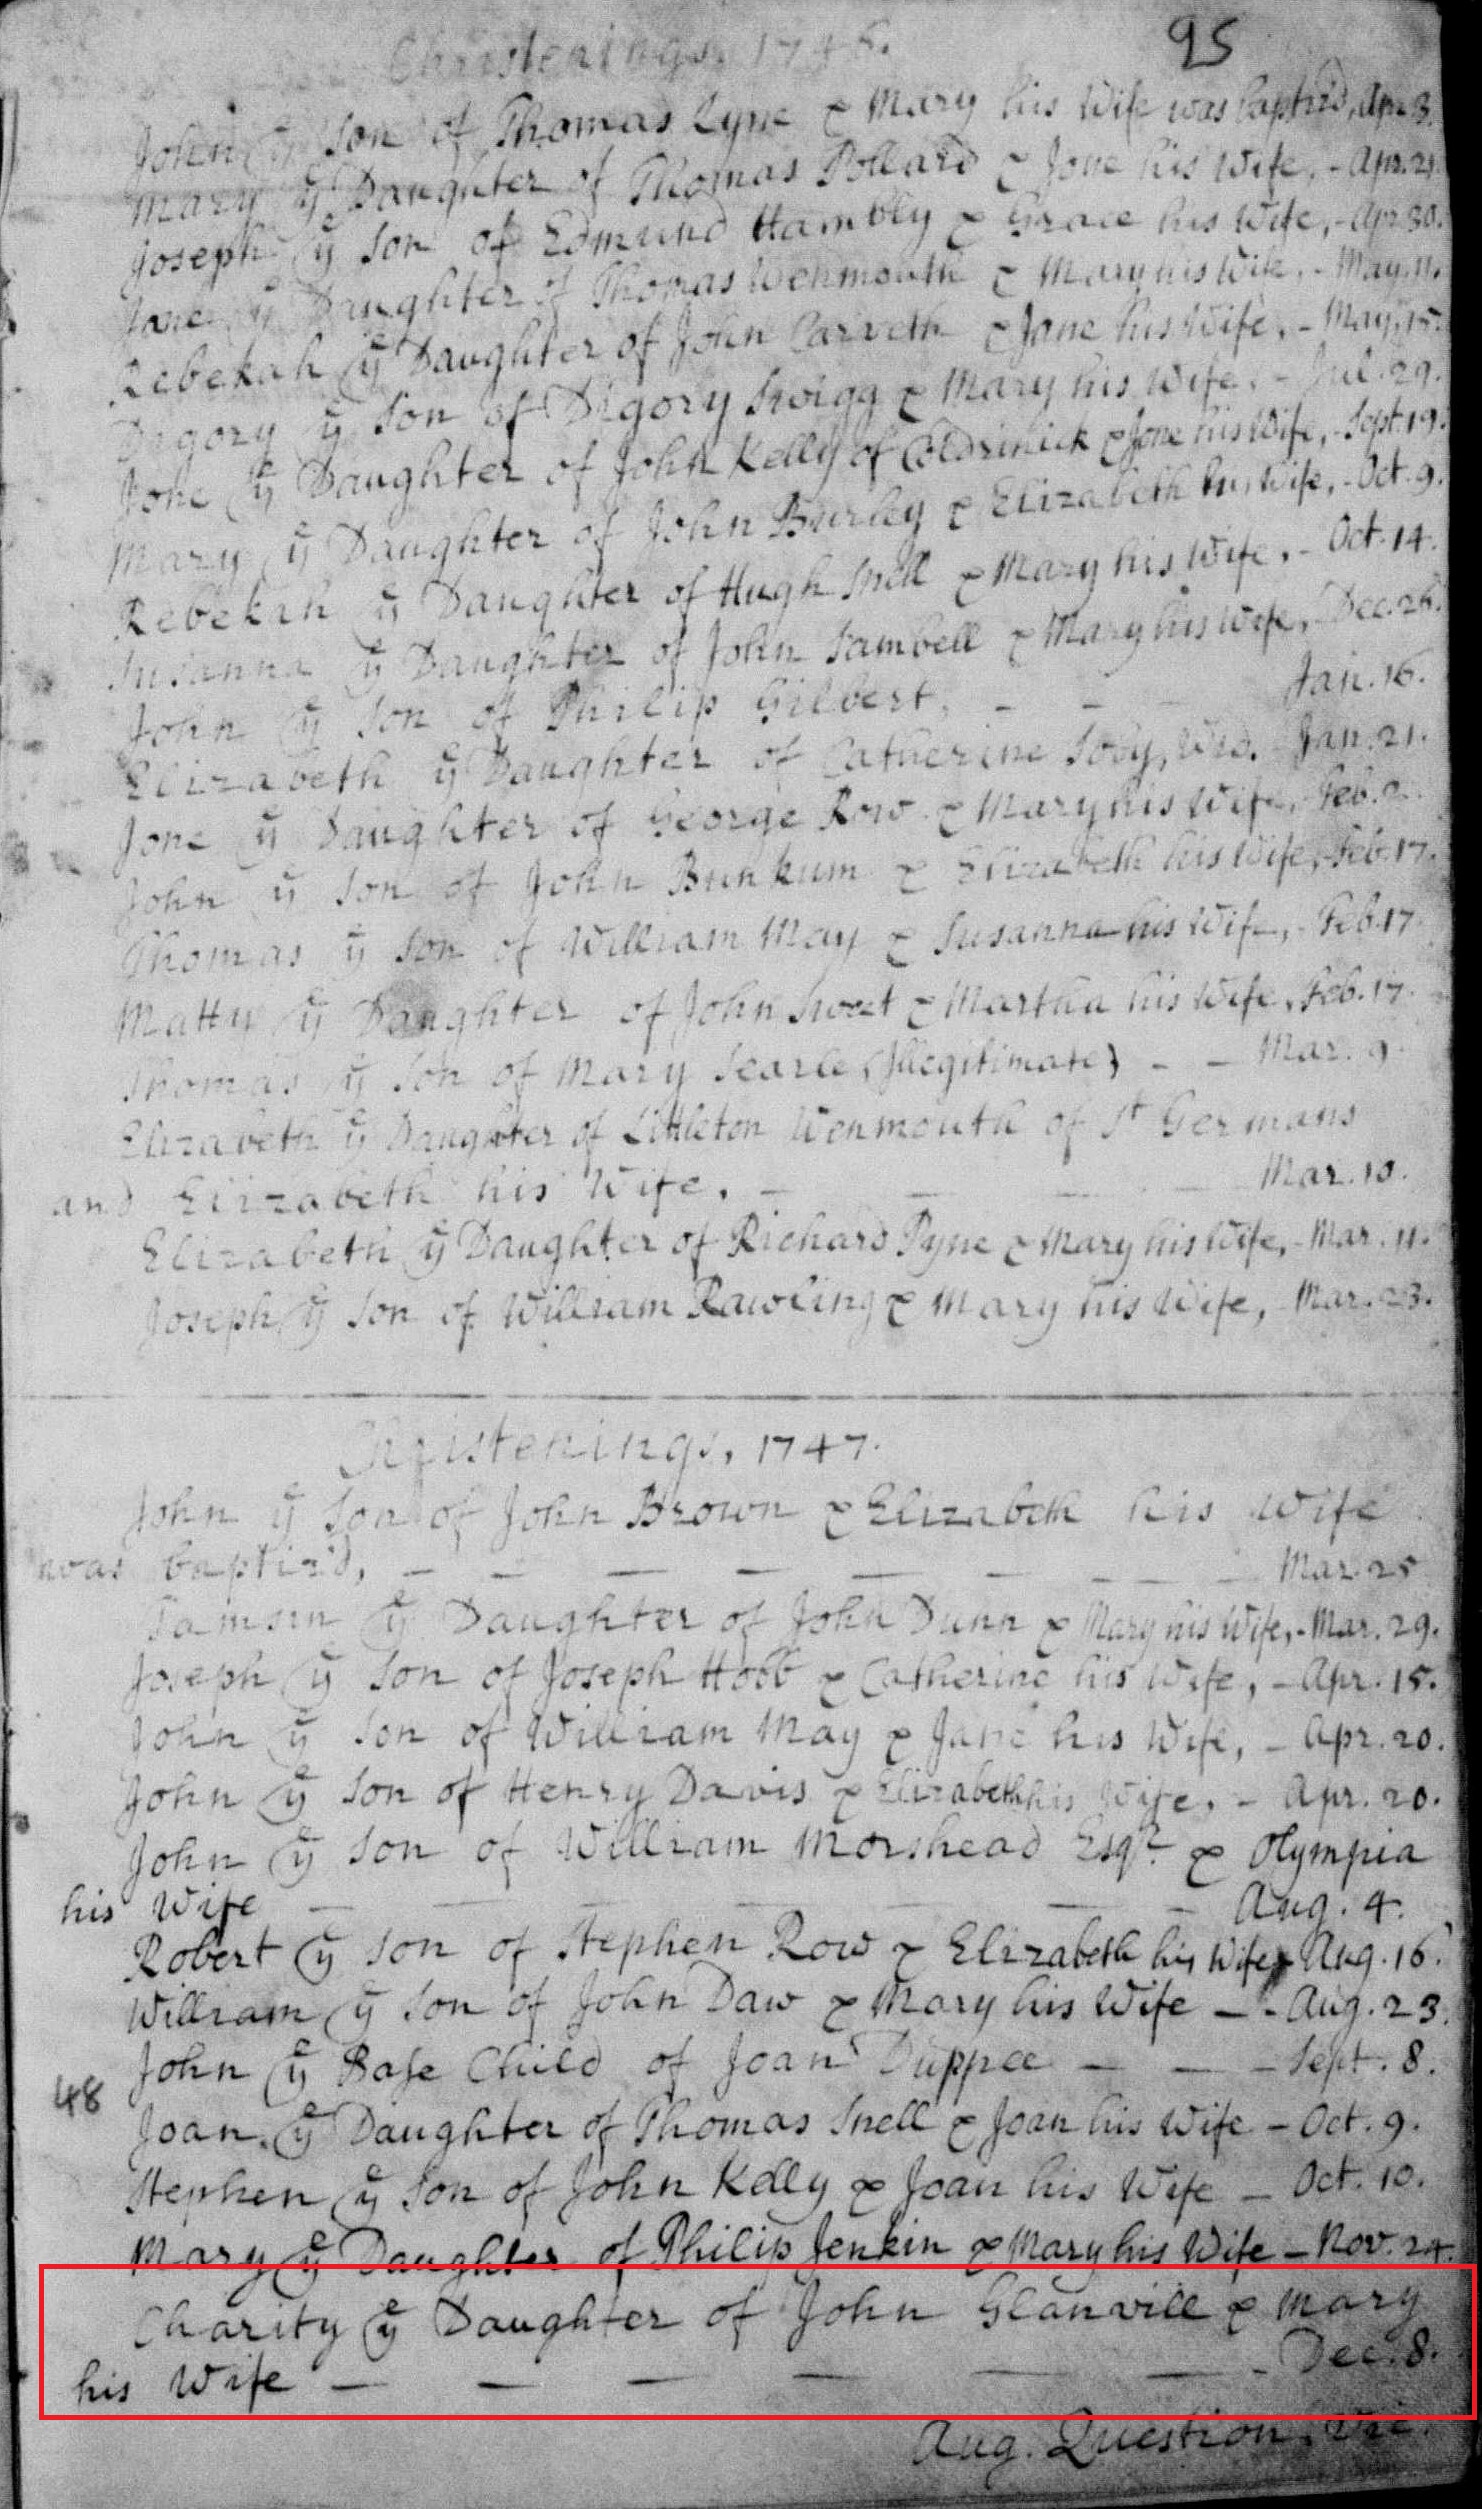 95
Christenings, 1746.
John ye Son of Thomas Lyne & Mary his Wife was baptiz'd, Apr. 3.
Mary ye Daughter of Thomas Pollard & Jone his Wife, - Apr. 21.
Joseph ye Son of Edmund Hambly & Grace his Wife, - Apr. 30.
Jane ye Daughter of Thomas Wenmouth & Mary his Wife, - May. 11.
Rebekah ye Daughter of John Carveth & Jane his Wife, - May. 15.
Digory ye Son of Digory Swigg & Mary his Wife, - Jul. 29.
Jone ye Daughter of John Kelly of Coldrinick & Jone his Wife, - Sept. 19.
Mary ye Daughter of John Burley & Elizabeth his Wife, - Oct. 9.
Rebekah ye Daughter of Hugh Snell & Mary his Wife, - Oct. 14.
Susanna ye Daughter of John Sambell & Mary his Wife, Dec. 26.
John ye Son of Philip Gilbert, - - Jan. 16.
Elizabeth ye Daughter of Catherine Toby, Wid. Jan. 21.
Jone ye Daughter of George Row & Mary his Wife, Feb. 2.
John ye Son of John Bunkum & Elizabeth his Wife, Feb. 17.
Thomas ye Son of William May & Susanna his Wife, - Feb. 17.
Matty ye Daughter of John Sweet & Martha his Wife, Feb. 17.
Thomas ye Son of Mary Searle (Illegitimate) - - Mar. 9.
Elizabeth ye Daughter of Littleton Wenmouth of St Germans
and Elizabeth his Wife, - - - - Mar. 10.
Elizabeth ye Daughter of Richard Pyne & Mary his Wife, - Mar. 11.
Joseph ye Son of William Rawling & Mary his Wife, Mar. 23.
Christenings, 1747.
John ye Son of John Brown & Elizabeth his Wife
was baptiz'd, - - - - - - - - Mar. 25
Tamsin ye Daughter of John Dunn & Mary his Wife, - Mar. 29.
Joseph ye Son of Joseph Hobb & Catherine his Wife, - Apr. 15.
John ye Son of William May & Jane his Wife, - Apr. 20.
John ye Son of Henry Davis & Elizabeth his Wife, - Apr. 20.
John ye Son of William Morshead Esqr. & Olympia
his Wife - - - - - - - Aug. 4.
Robert ye Son of Stephen Row & Elizabeth his Wife, Aug. 16.
William ye Son of John Daw & Mary his Wife - - Aug. 23.
John ye Base Child of Joan Duppee - - - Sept. 8.
48
Joan ye Daughter of Thomas Snell & Joan his Wife - Oct. 9.
Stephen ye Son of John Kelly & Joan his Wife - Oct. 10.
Mary ye Daughter of Philip Jenkin & Mary his Wife - Nov. 24.
Charity ye Daughter of John Glanvill & Mary
his Wife - - - - - - - Dec. 8.
Aug. Question, Vic.